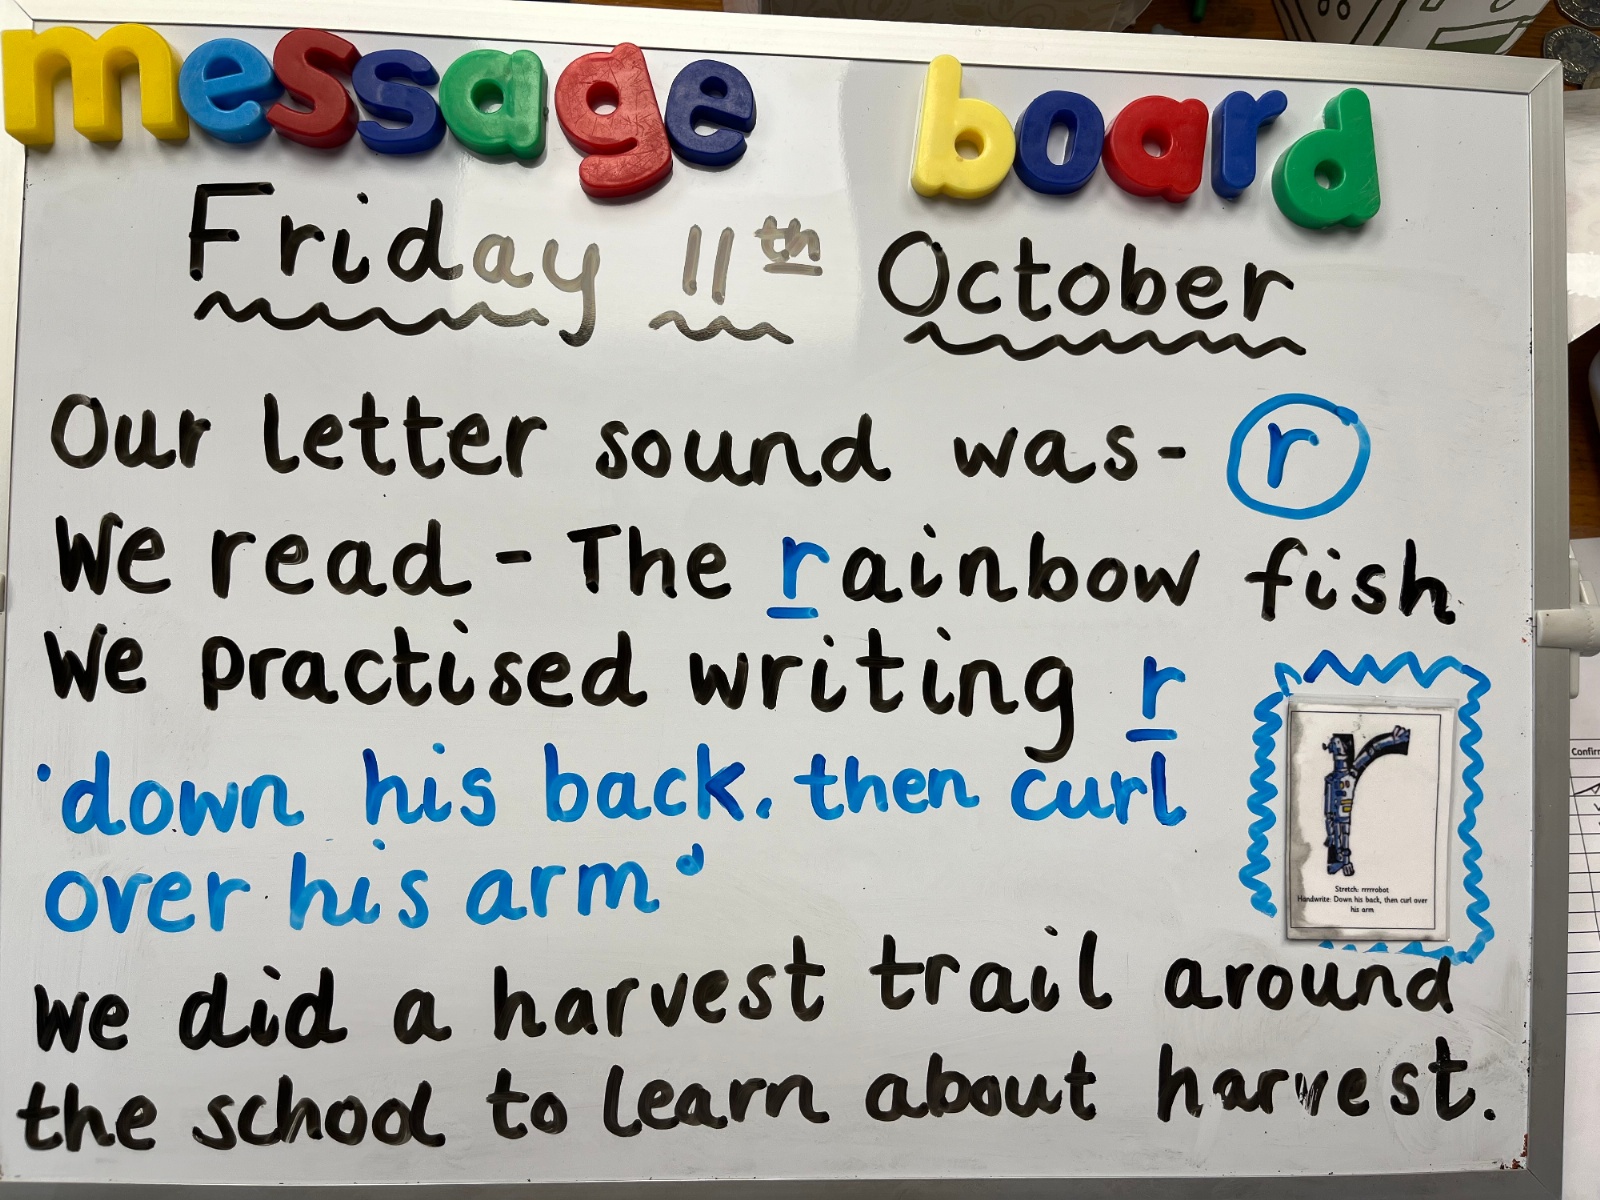 message board
Friday 11th October
Our letter sound was- r
We read - The rainbow fish
We practised writing r
'down his back, then curl
over his arm'
Stretch: rrrrrobot
Handwrite: Down his back, then curl over
his arm
We did a harvest trail around
the school to learn about harvest.
Confirm